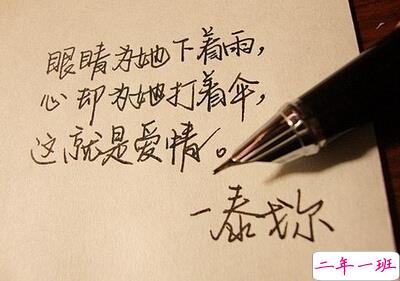 眼睛为她下着雨，
心却为她打着伞，
这就是爱情。
一泰戈尔
二年一班